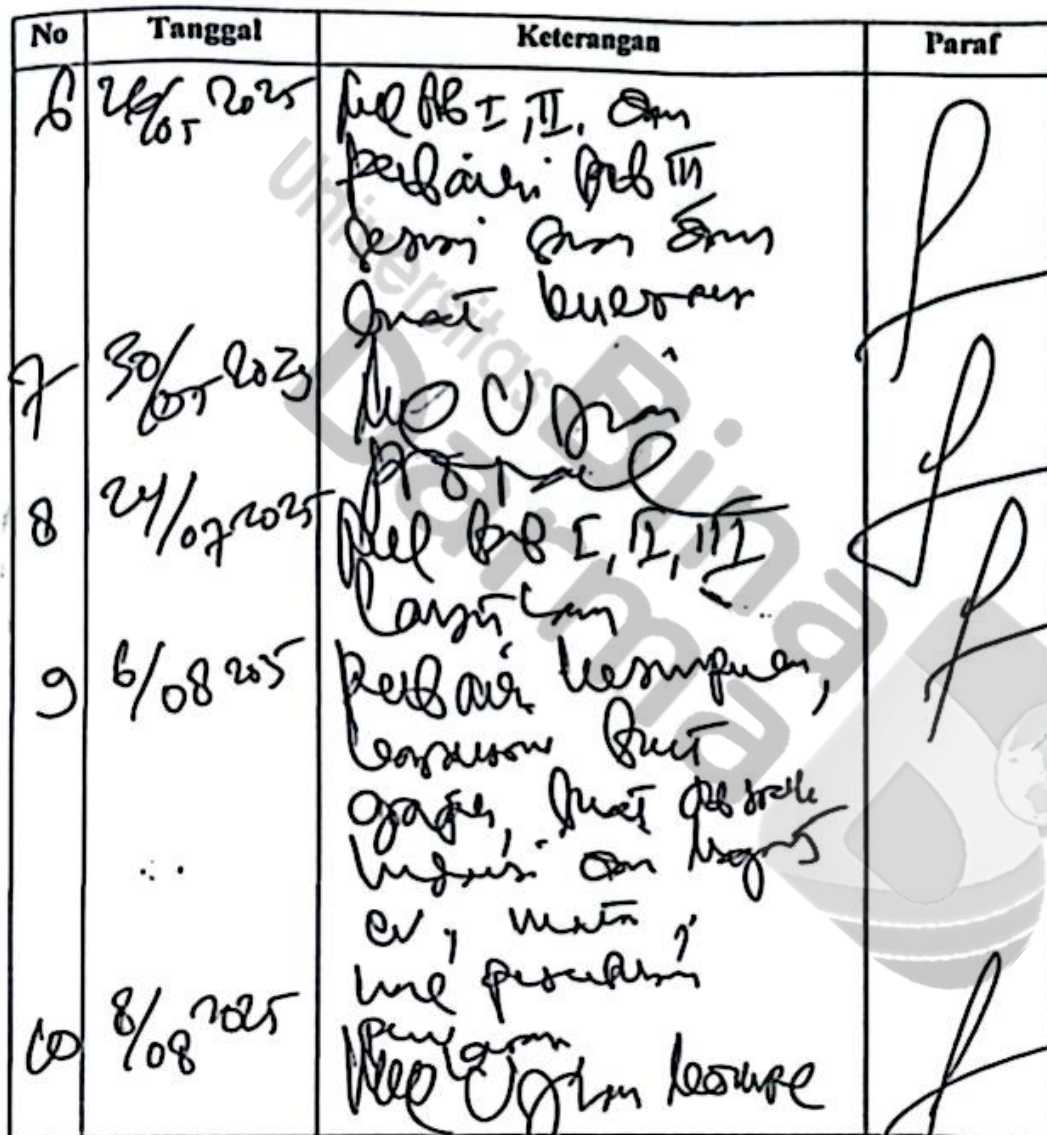 No Tanggal Keterangan Paraf
6 26/05 2025 Acc BAB I, II, dan
perbaiki Bab III
sesuai saran dan
buat kuesioner
7 30/05 2025 Acc Ujian
Proposal
8 24/07 2025 Acc BAB I, II, III
Lanjutkan
9 6/08 2025 perbaiki kesimpulan,
buat
buat abstrak
dan
cv,
10 8/08 2025 Acc Ujian kompre
Universitas
Bina
Darma